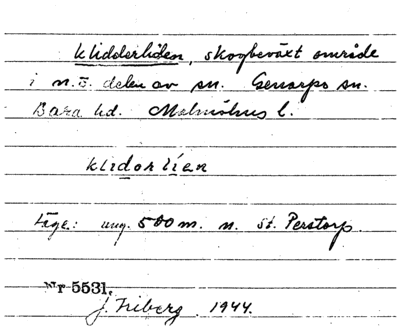 Klidderliden, skogbeväxt område
i n.ö. delen av sn. Genarps sn.
Bara hd. Malmöhus l.
klidorlíen
Läge: ung. 500 m. n. St. Perstorp.
Nr 5531.
J. Friberg 1944.